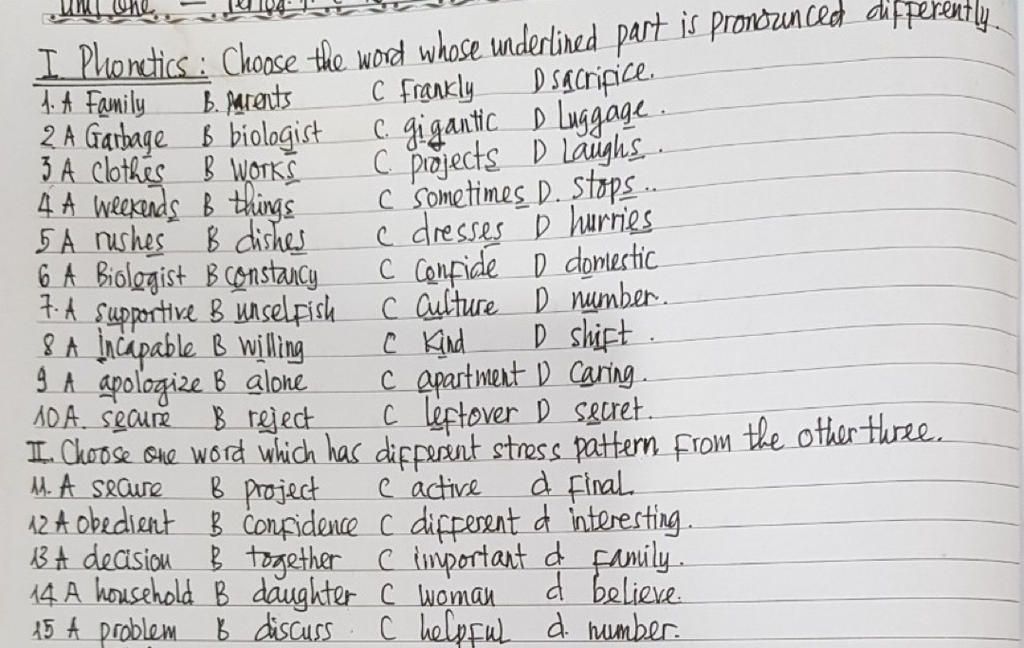 Unit One -
I Phonetics: Choose the word whose underlined part is pronounced differently.
1. A Family B. parents C Frankly D sacrifice.
2 A Garbage B biologist C. gigantic D Luggage.
3 A clothes B works C. projects D Laughs.
4 A weekends B things C sometimes D. stops..
5 A rushes B dishes C dresses D hurries
6 A Biologist B constancy C Confide D domestic
7. A supportive B unselfish C Culture D number.
8 A Incapable B willing C Kind D shift.
9 A apologize B alone C apartment D Caring.
10 A. secure B reject C leftover D secret.
II. Choose one word which has different stress pattern from the other three.
11. A secure B project C active d Final.
12 A obedient B Confidence C different d interesting.
13 A decision B together C important d family.
14 A household B daughter C woman d believe.
15 A problem B discuss C helpful d. number.